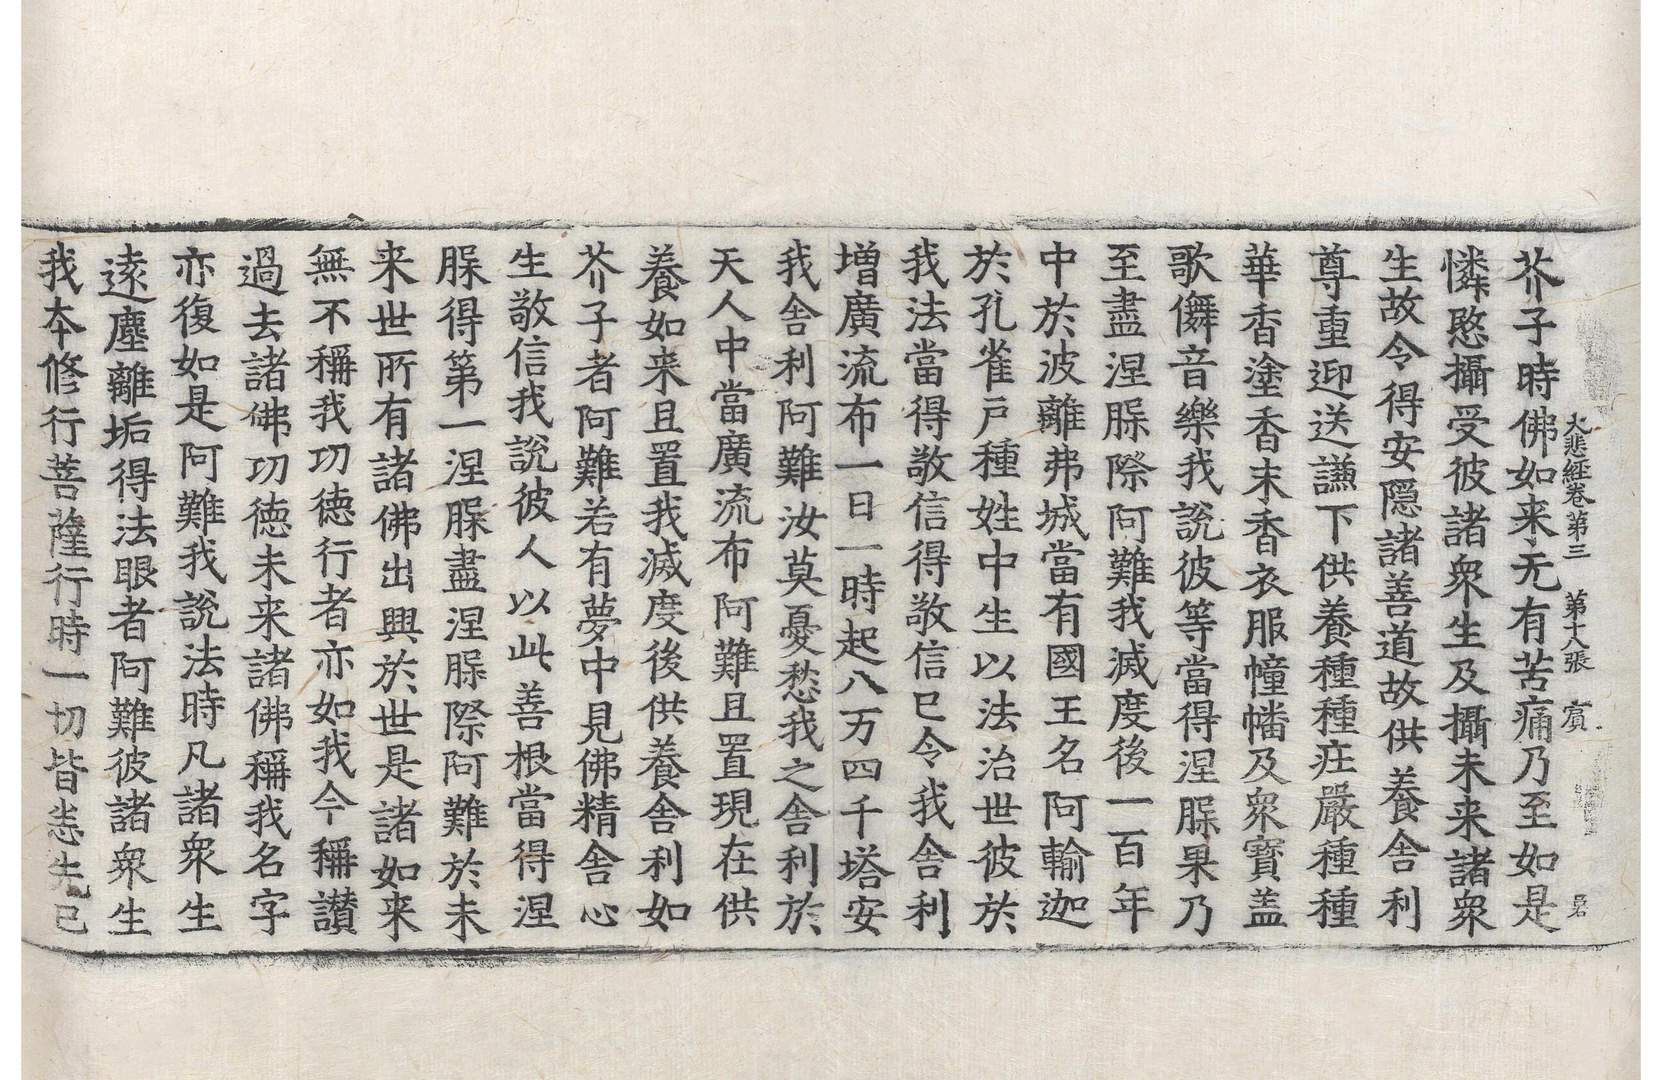 大悲經卷第三 第十八張 賓
芥子時佛如来无有苦痛乃至如是
憐愍攝受彼諸衆生及攝未来諸衆
生故令得安隱諸善道故供養舍利
尊重迎送謙下供養種種㽵嚴種種
華香塗香末香衣服幢幡及衆寶盖
歌儛音樂我說彼等當得涅槃果乃
至盡涅槃際阿難我滅度後一百年
中於波離弗城當有國王名阿輸迦
於孔雀戶種姓中生以法治世彼於
我法當得敬信得敬信已令我舍利
増廣流布一日一時起八万四千塔安
我舍利阿難汝莫憂愁我之舍利於
天人中當廣流布阿難且置現在供
養如来且置我滅度後供養舍利如
芥子者阿難若有夢中見佛精舍心
生敬信我說彼人以此善根當得涅
槃得第一涅槃盡涅槃際阿難於未
来世所有諸佛出興於世是諸如来
無不稱我功德行者亦如我今稱讃
過去諸佛功德未来諸佛稱我名字
亦復如是阿難我說法時凡諸衆生
遠塵離垢得法眼者阿難彼諸衆生
我本修行菩薩行時一切皆悉先已